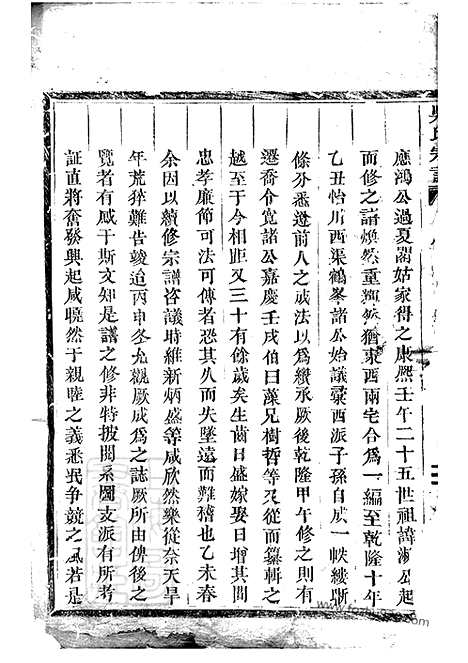 吳氏宗譜
應鴻公過夏閣姑家得之康熙壬午二十五世祖諱 公起
而修之譜煥然重 然猶東西兩宅合爲一編至乾隆十年
乙丑怡川西渠鶴峯諸公始議彙西派子孫自成一帙縷晰
條分悉遵前人之成法以爲纘承厥後乾隆甲午修之則有
遷喬介寛諸公嘉慶壬戌伯曰藻兄樹哲等又從而纂輯之
越至于今相距又三十有餘歲矣生齒日盛嫁娶日增其間
忠孝廉節可法可傳者恐其久而失墜遠而難稽也乙未春
余因以續修宗譜咨議時維新炳盛等咸欣然樂從奈天旱
年荒猝難告竣迨丙申冬允觀厥成爲之誌厥所由俾後之
覽者有感于斯文知是譜之修非特披閱系圖支派有所考
証直將奮發興起咸曉然于親睦之義悉泯爭競之風若是